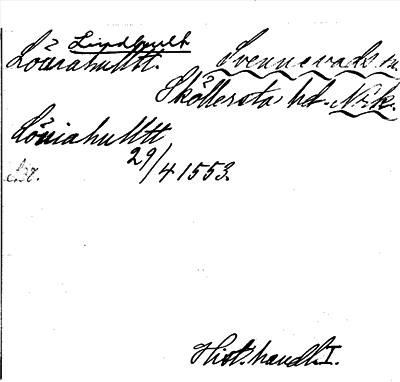 Lindhult
Löuiahultt. Svennevads sn
Sköllersta hd. Nrk.
Löuiahultt
29/4 1553.
Hist. handl. I.